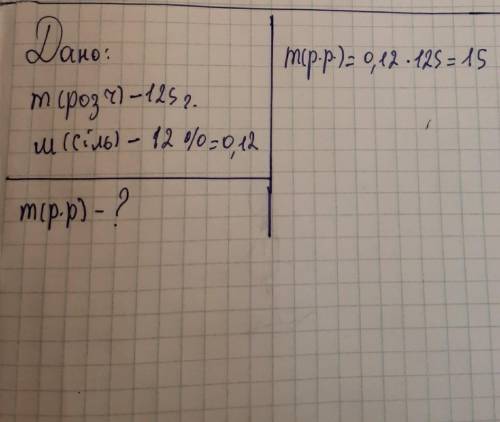 Дано:
m(розч) – 125 г.
ш(сіль) – 12 % = 0,12
m(р.р) – ?
m(р.р.) = 0,12 · 125 = 15